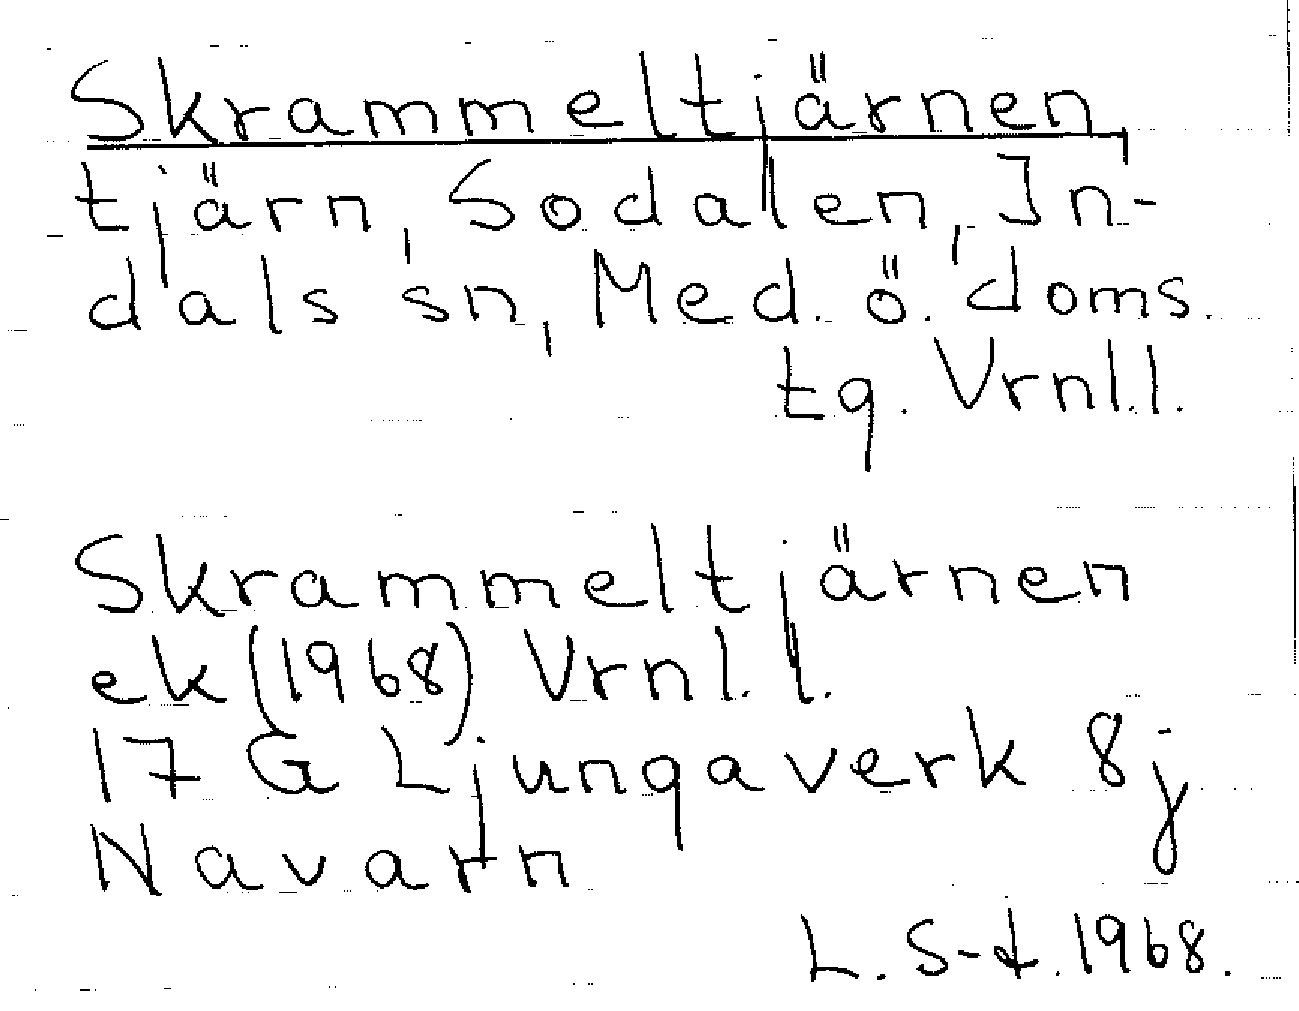 Skrammeltjärnen,
tjärn, Sodalen, In-
dals sn, Med. ö. doms.
tg. Vrnl.l.
Skrammeltjärnen
ek (1968) Vrnl.l.
17 G Ljungaverk 8j
Navarn
L. S-d. 1968.